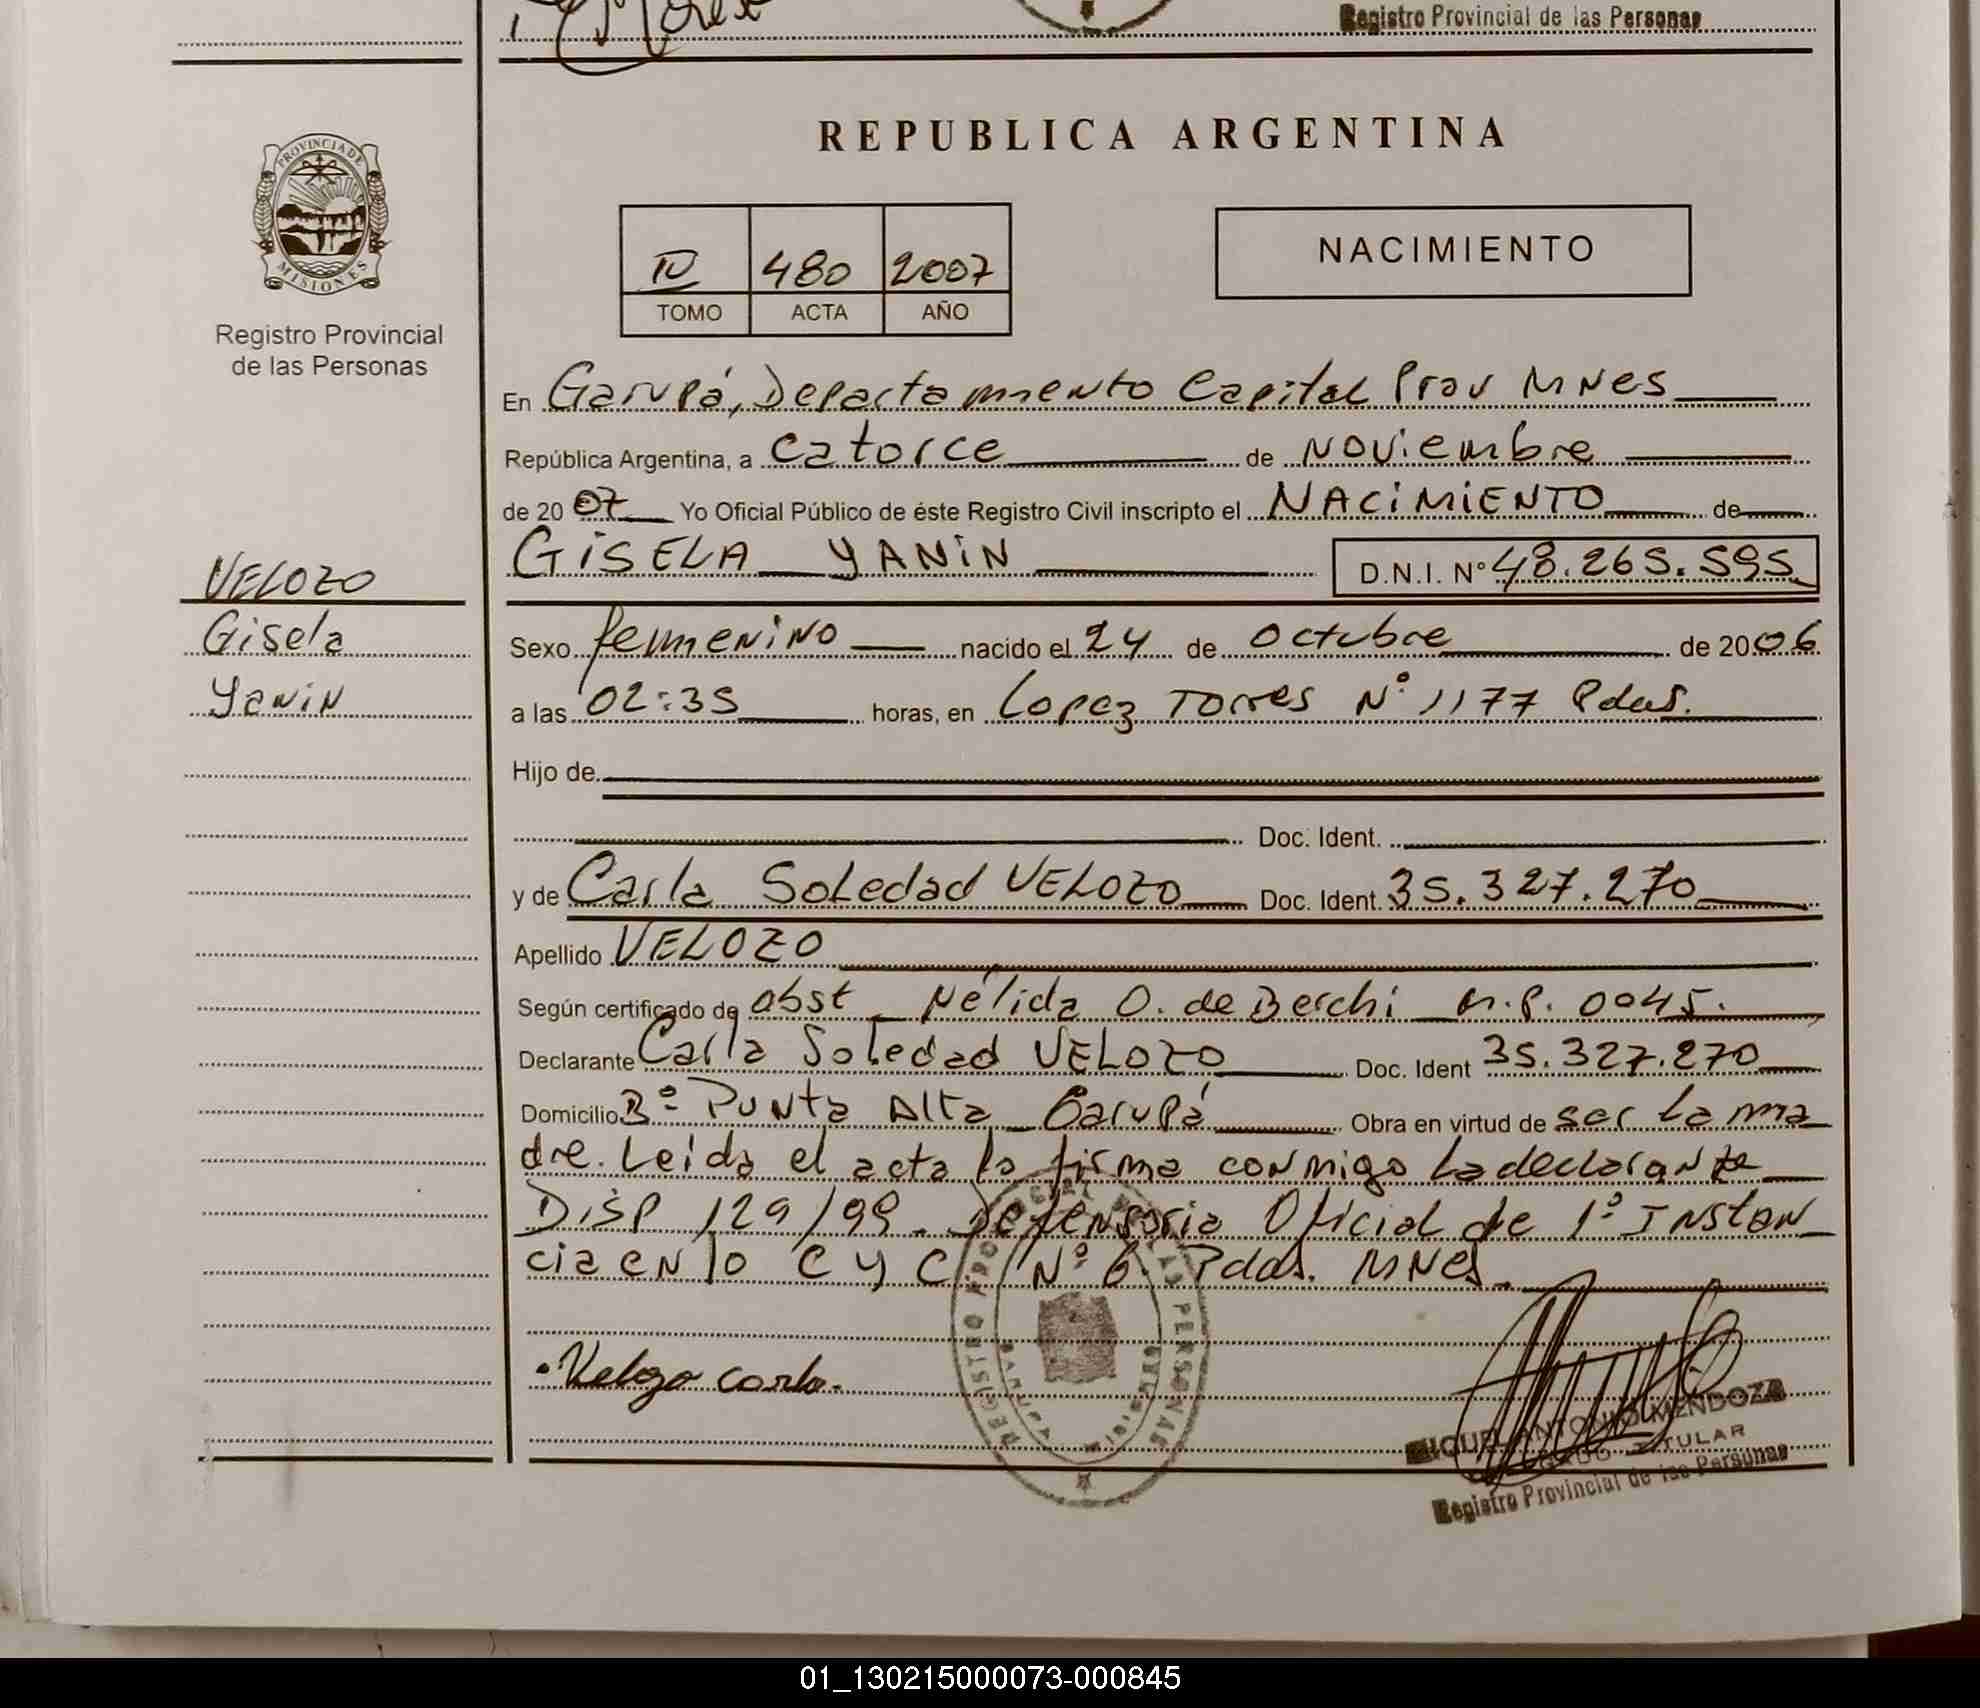 Registro Provincial de las Personas
PROVINCIA DE
MISIONES
Registro Provincial
de las Personas
REPUBLICA ARGENTINA
IV 480 2007
TOMO ACTA AÑO
NACIMIENTO
En Garupá, Departamento Capital Prov MNes
República Argentina, a catorce de Noviembre
de 2007 Yo Oficial Público de éste Registro Civil inscripto el NACIMIENTO de
GISELA YANIN D.N.I. Nº 48.265.595
VELOZO
Gisela
Yanin
Sexo femenino nacido el 24 de octubre de 2006
a las 02:35 horas, en Lopez Torres Nº 1177 Pdas.
Hijo de
Doc. Ident.
y de Carla Soledad VELOZO Doc. Ident. 35.327.270
Apellido VELOZO
Según certificado de obst Nélida O. de Berchi M.P. 0045.
Declarante Carla Soledad VELOZO Doc. Ident 35.327.270
Domicilio Bº Punta Alta Garupá Obra en virtud de ser la ma
dre. Leida el acta la firma conmigo La declarante
DISP 129/99. Defensoria Oficial de 1º Instan
cia en lo C y C Nº 6 Pdas. MNes.
Velozo carla.
REGISTRO PROVINCIAL DE LAS PERSONAS
GARUPA MISIONES
MIGUEL ANTONIO MENDOZA
DELEGADO TITULAR
Registro Provincial de las Personas
01_130215000073-000845